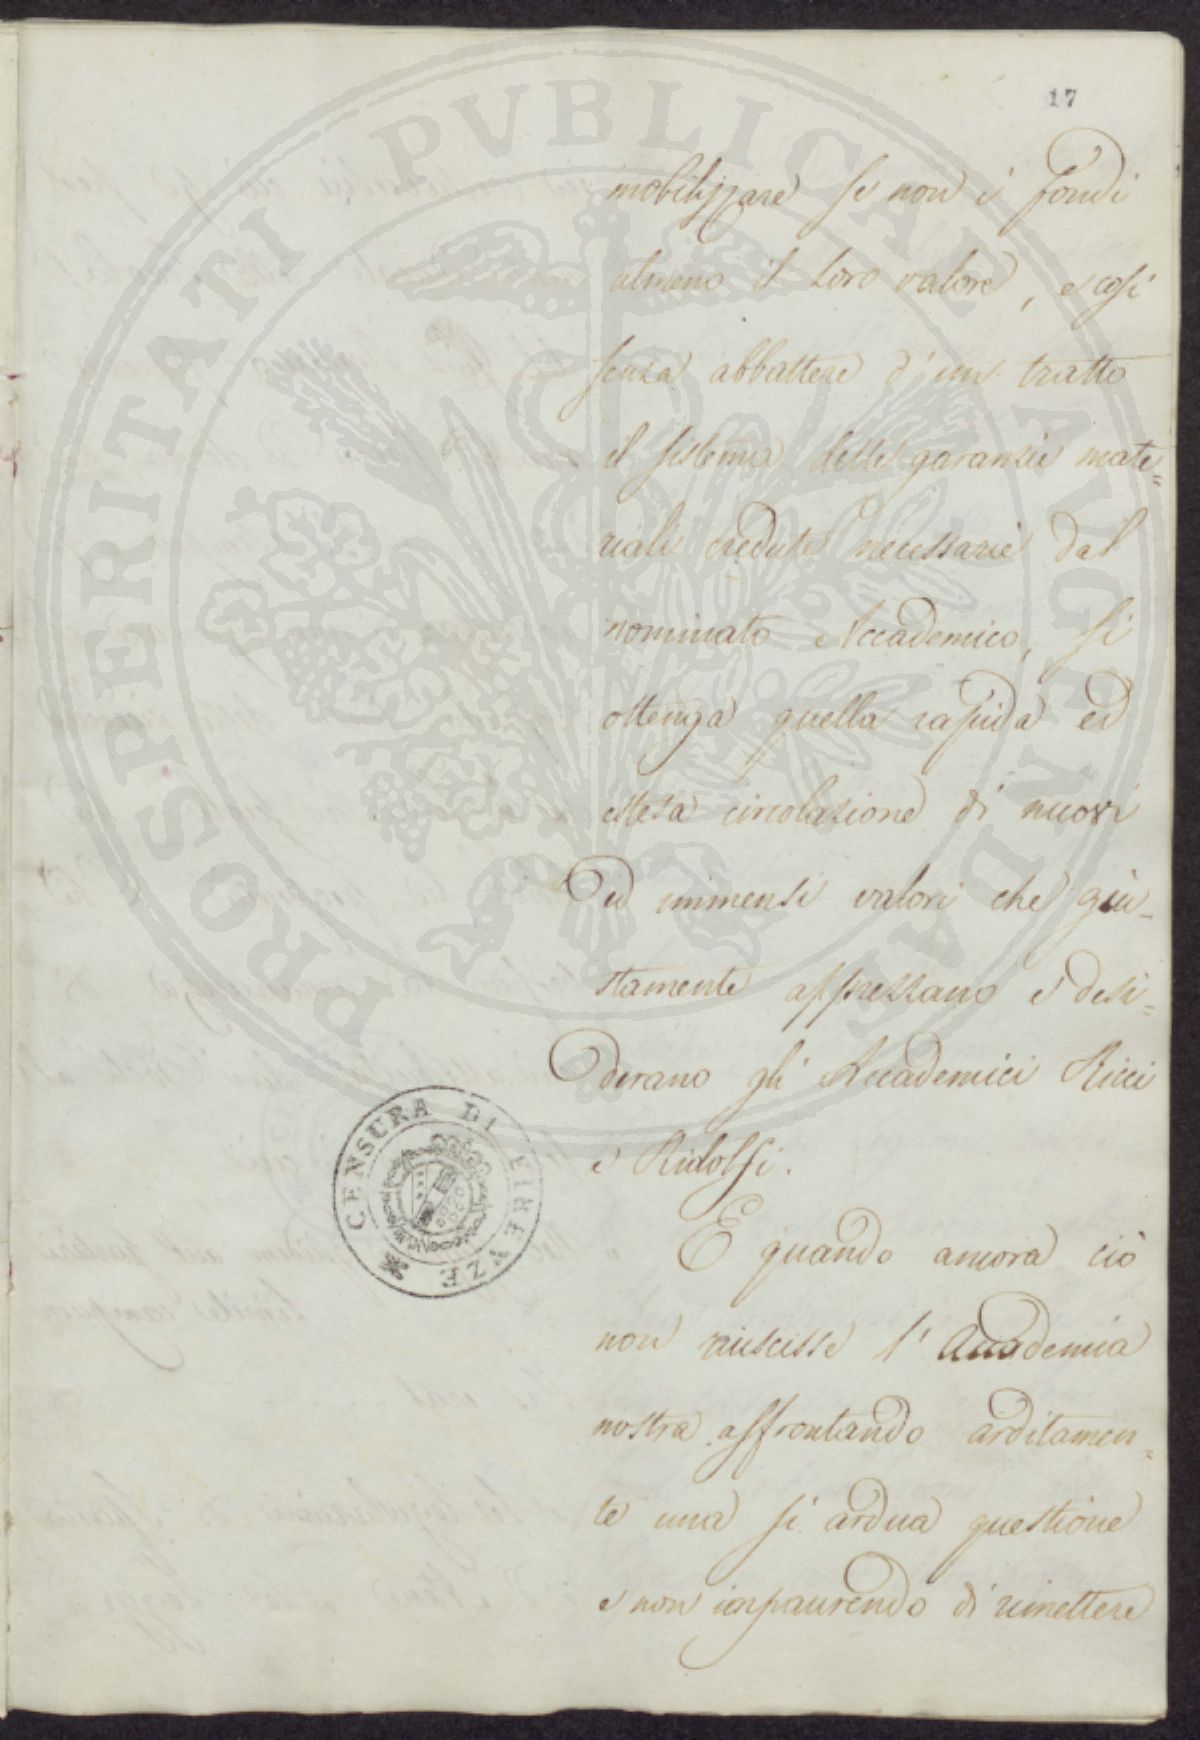 17
mobilizzare se non i fondi
almeno il loro valore, e così
senza abbattere d'un tratto
il sistema delle garanzie mate=
riali credute necessarie dal
nominato Accademico, si
ottenga quella rapida ed
estesa circolazione di nuovi
ed immensi valori che giu-
stamente apprezzano e desi=
derano gli Accademici Ricci
e Ridolfi.
E quando ancora ciò
non riuscisse l'Accademia
nostra affrontando arditamen-
te una sì ardua questione
e non impaurendo di rimettere
CENSURA DI FIRENZE
PROSPERITATI PVBLICAE AVGENDAE